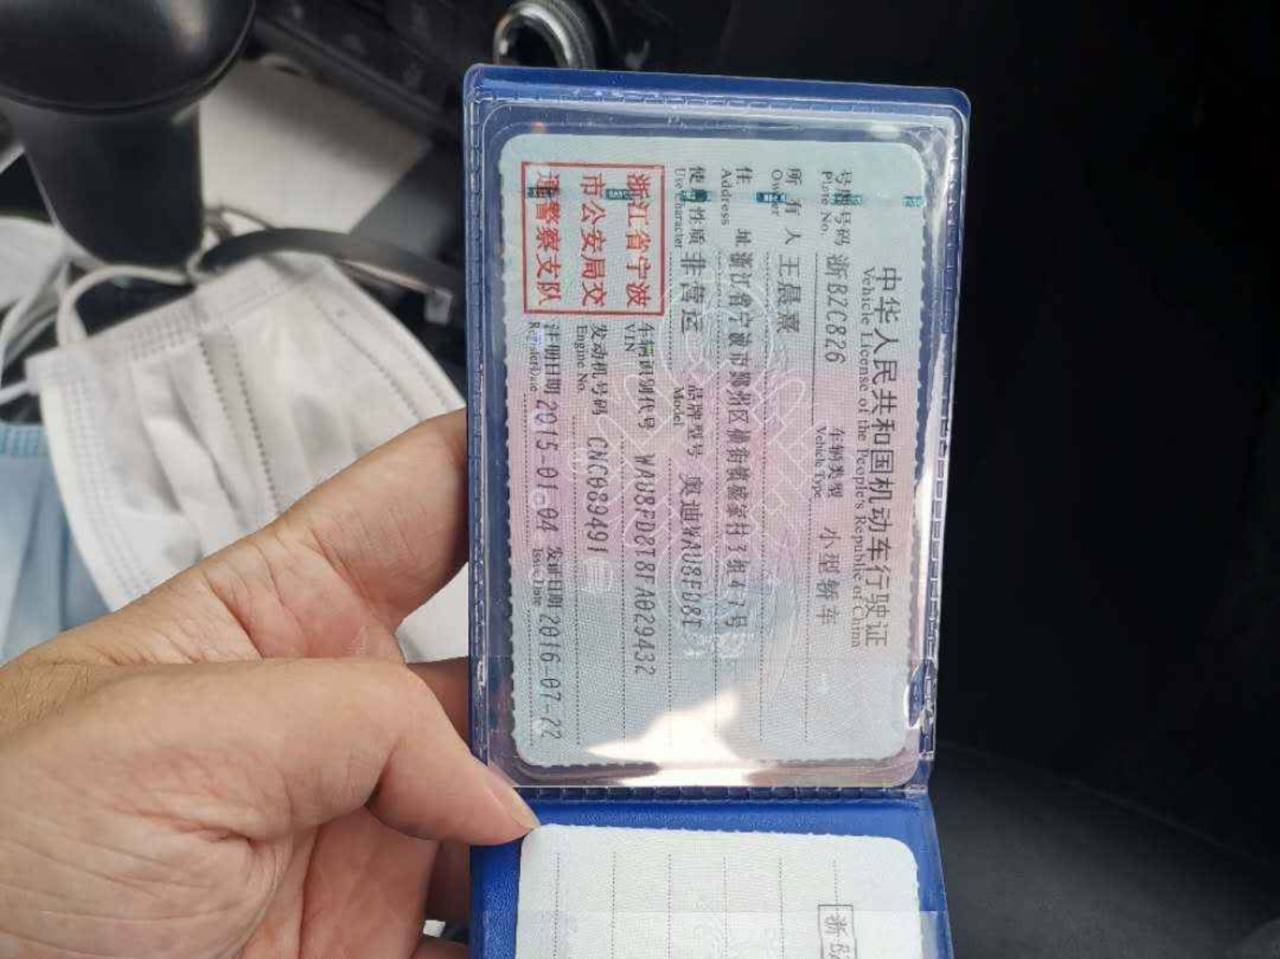 中华人民共和国机动车行驶证
Vehicle License of the People's Republic of China
号牌号码 浙BZC826 车辆类型 小型轿车
Plate No. Vehicle Type
所有人 王晨熹
Owner
住址 浙江省宁波市鄞州区横街镇盛家村3组47号
Address
使用性质 非营运 品牌型号 奥迪WAU8FD8T
Use Character Model
浙江省宁波
市公安局交
通警察支队
车辆识别代号 WAU8FD8T8FA029432
VIN
发动机号码 CNC089491
Engine No.
注册日期 2015-01-04 发证日期 2016-07-22
Register Date Issue Date